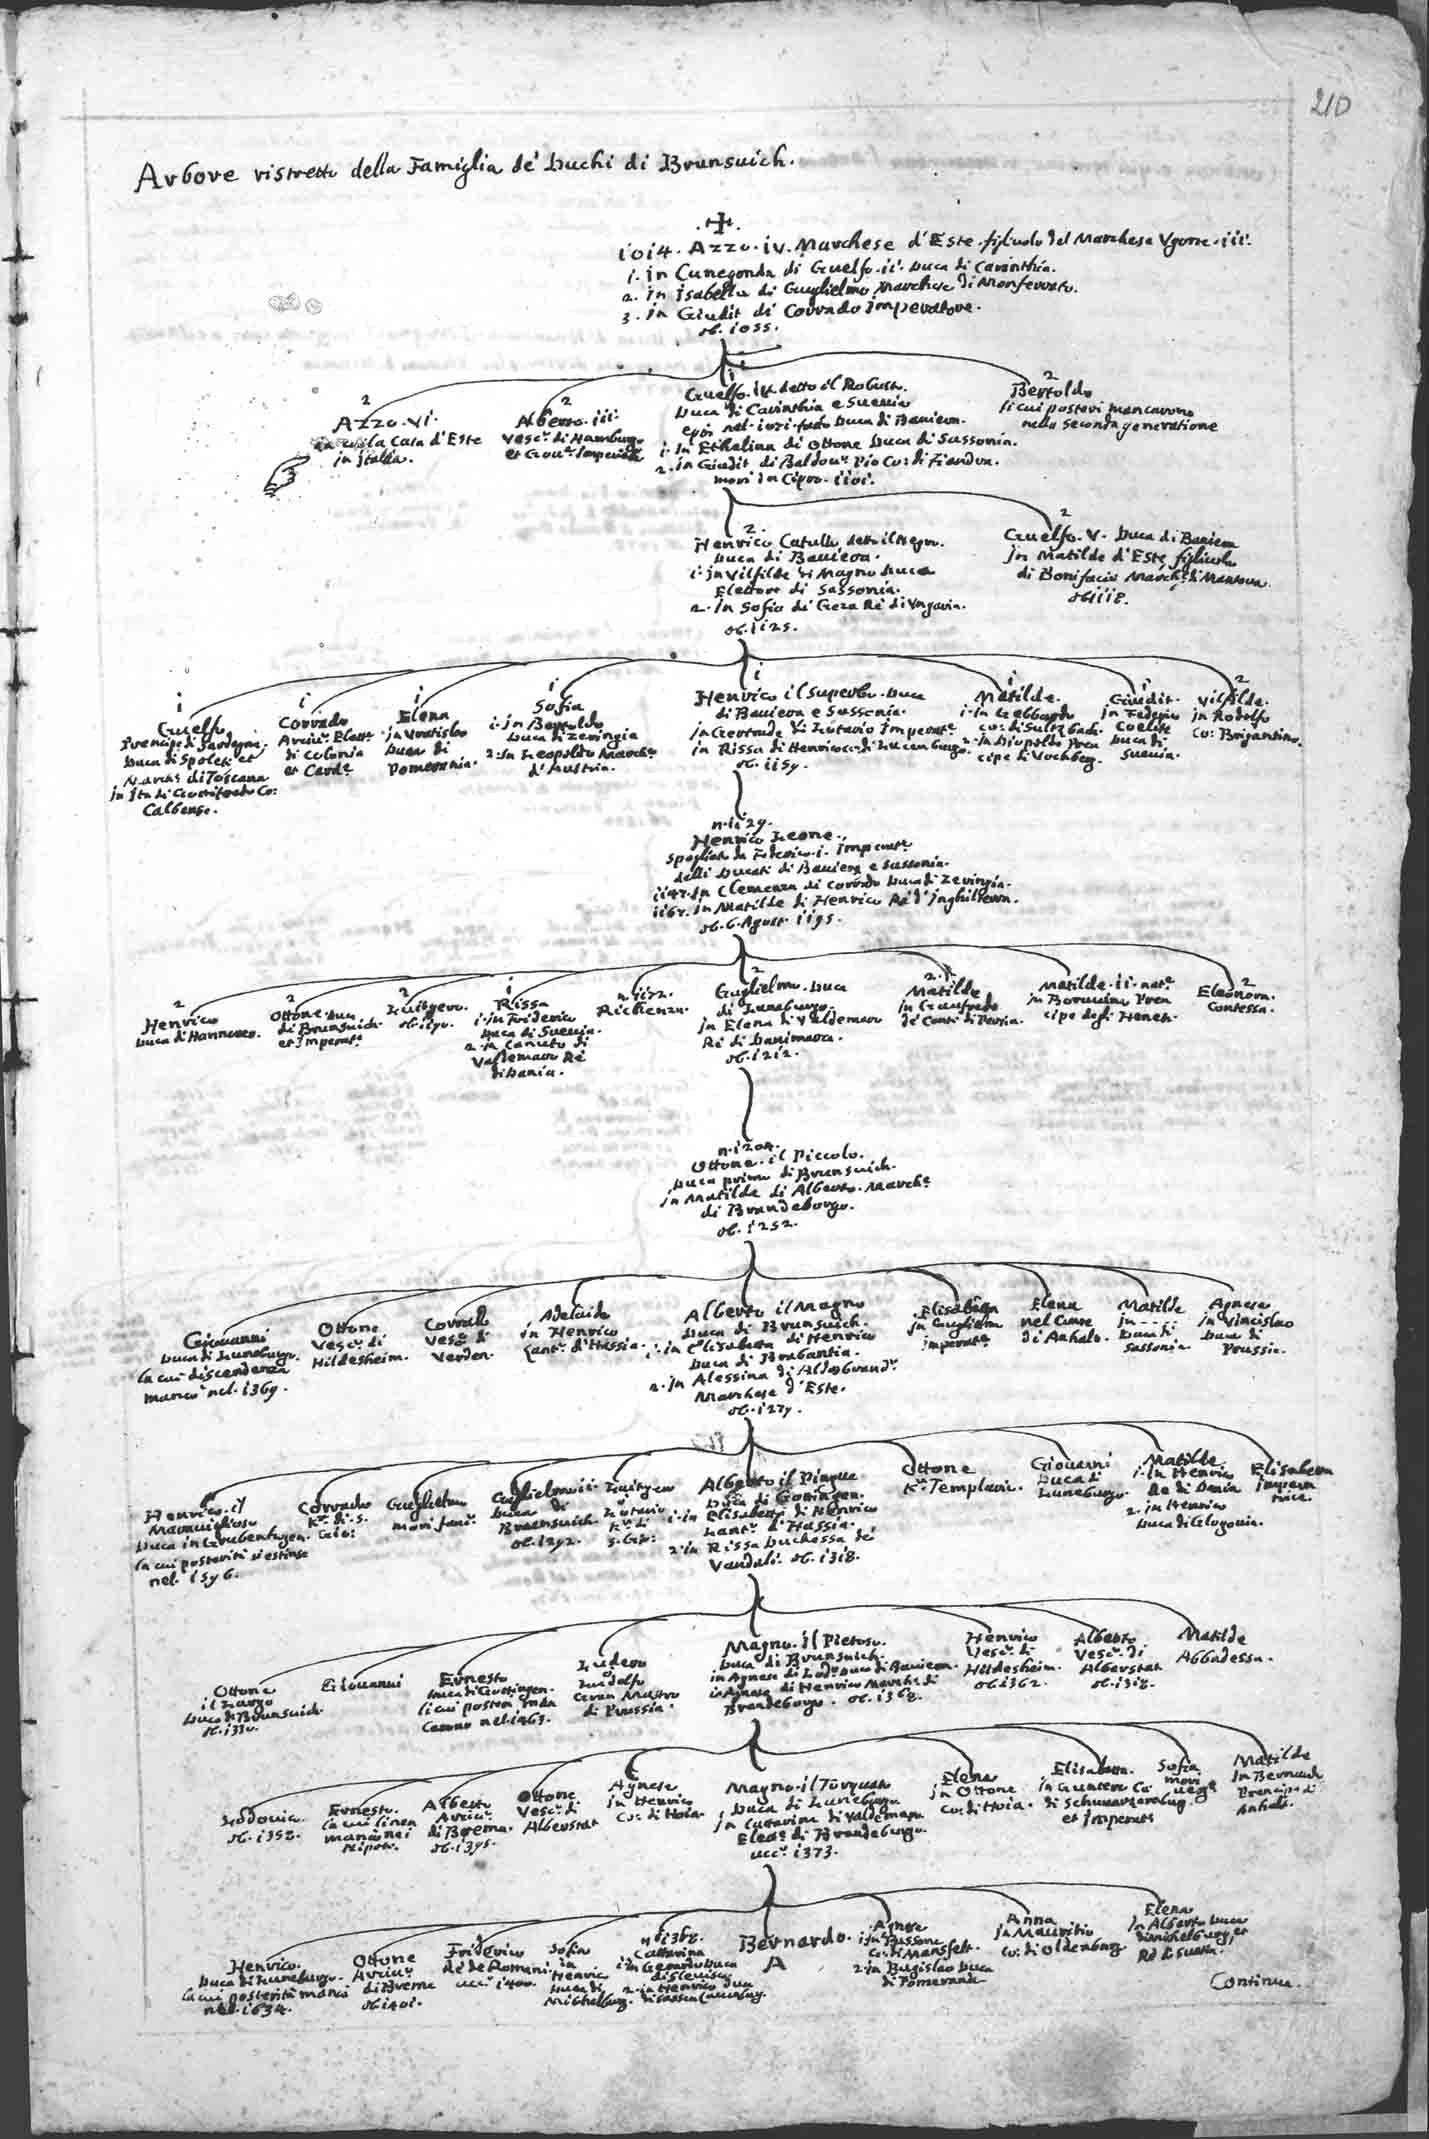 210
Arbore ristretto della Famiglia de' Duchi di Brunsuich.
1014. Azzo. iv. Marchese d'Este figliuolo del Marchese Vgone. iii.
1. in Cunegonda di Guelfo. ii. Duca di Carinthia.
2. in Isabella di Guglielmo Marchese di Monferrato.
3. in Giudit di Corrado Imperatore.
ob. 1055.
2
Azzo. vi.
la Casa d'Este
in Italia.
2
Alberto. iii.
Vesc.o di Hamburgo
et
1
Guelfo. iv. detto il Robusto.
Duca di Carinthia e Sueuia
nel. 1071. Duca di Bauiera.
1. In Ethelina di Ottone Duca di Sassonia.
2. in Giudit di Baldou.o Pio Co: di Fiandra.
morì in Cipro. 1101.
2
Bertoldo
li cui posteri mancarono
nella seconda generatione
2.
Henrico Catullo detto il Negro.
Duca di Bauiera.
1. in Vilfilde di Magno Duca
Elettore di Sassonia.
2. in Sofia di Geza Rè di Vngaria.
ob. 1125.
2
Guelfo. V. Duca di Bauiera
in Matilde d'Este figliuola
di Bonifacio March.e di Mantoua.
ob 1118.
1
Guelfo
Prencipe di Sardegna
Duca di Spoleti et
March. di Toscana
in Ita di Co:
Calbense.
1
Corrado
Arciu.o Elett.
di Colonia
et Card.e
1
Elena
in Vratislao
Duca di
Pomerania.
1
Sofia
1. in Bertoldo
Duca di Zeringia
2. in Leopoldo March.e
d'Austria.
1
Henrico il Superbo. Duca
di Bauiera e Sassonia.
in Gertrude di Lotario Imperat.e
in Rissa di Henrico c. di Lucemburgo.
ob. 1159.
1
Matilde.
1. in Gebbardo
co: di Sultzbach.
2. in Diupoldo Pren
cipe di Vochberg.
1
Giudit.
in Federico
Coclite
Duca di
Sueuia.
2
Vilfilde.
in Rodolfo
Co: Brigantino.
n. 1129.
Henrico Leone.
Spogliato da Federico. i. Imperat.e
delli Ducati di Bauiera e Sassonia.
1147. in Clemenza di Corrado Duca di Zeringia.
1167. in Matilde di Henrico Rè d'Inghilterra.
ob. 6. Agost. 1195.
2
Henrico
Duca di Hannouer.
2
Ottone. Duca
di Brunsuich.
et Imperat.e
2
Luitgero.
ob.
1
Rissa
1. in Friderico
Duca di Sueuia.
2. in Canuto di
Valdemaro Rè
di Dania.
n. 1172.
Richenza.
2
Guglielmo. Duca
di Luneburgo.
in Elena di Valdemaro
Rè di Danimarca.
ob. 1212.
2.
Matilde
in Gaufredo
de' Conti di Percia.
Matilde. ii. nat.e
in Boruuino Pren
cipe degli Heneti.
2
Eleonora.
Contessa.
n. 1204.
Ottone. il Piccolo.
Duca primo di Brunsuich.
in Matilde di Alberto. March.e
di Brandeborgo.
ob. 1252.
Giouanni
Duca di Luneburgo.
la cui discendenza
mancò nel. 1369.
Ottone
Vesc.o di
Hildesheim.
Corrado
Vesc.o di
Verden.
Adelaide
in Henrico
Lant.o d'Hassia.
Alberto il Magno
Duca di Brunsuich.
1. in Elisabetta di Henrico
Duca di Brabantia.
2. in Alessina di Aldobrand.o
Marchese d'Este.
ob. 1279.
Elisabetta
in Guglielmo
Imperat.e
Elena
nel Conte
di Anhalt.
Matilde
in - - - -
Duca di
Sassonia.
Agnese
in Vincislao
Duca di
Prussia.
Henrico. il
Marauiglioso
Duca in Grubenhagen.
la cui posterità si estinse
nel. 1596.
Corrado
K.r di S.
Gio:
Guglielmo
morì
Guglielmo ii.
Duca di
Brunsuich
ob. 1292.
Luitgero
Lotario
K.r di
S. Gio:
Alberto il Pingue
Duca di Gottingen.
1. in Elisabetta di Henrico
Lant.o d'Hassia.
2. in Rissa Duchessa de'
Vandali. ob. 1318.
Ottone
K.r Templario.
Giouanni
Duca di
Luneburgo.
Matilde
1. in Henrico
Rè di Dania
2. in Henrico
Duca di Glogouia.
Elisabetta
Impera
trice.
Ottone
il Largo
Duca di Brunsuich
ob. 1330.
Giouanni
Ernesto
Duca di Gottingen.
li cui posteri man
carono nel. 1463.
Ludero
o
Ludolfo
Gran Mastro
di Prussia.
Magno. il Pietoso.
Duca di Brunsuich.
in Agnese di Lod.o Duca di Bauiera.
in Agnese di Henrico March.e di
Brandeborgo. ob. 1368.
Henrico
Vesc.o di
Hildesheim.
ob 1362.
Alberto
Vesc.o di
Alberstat.
ob. 1318.
Matilde
Abbadessa.
Lodouico.
ob. 1358.
Ernesto.
la cui linea
mancò nei
nipoti.
Alberto
Arciu.o
di Brema.
ob. 1395.
Ottone.
Vesc.o di
Alberstat
Agnese
in Henrico
Co: di Hoia.
Magno. il Torquato
Duca di Luneburgo.
in Cattarina di Valdemaro
Elett.e di Brandeburgo.
ucc.o 1373.
Elena
in Ottone
Co: di Hoia.
Elisabetta.
in Guntero Co:
di Schwarzemburg
et Imperat.e
Sofia
morì
Matilde
in Bernardo
Prencipe di
Anhalt.
Henrico.
Duca di Luneburgo.
la cui posterità mancò
nel. 1634.
Ottone
Arciu.o
di Brema
ob 1401.
Friderico
Rè de Romani
ucc.o 1400.
Sofia
in
Henrico
Duca di
Michelburg.
n. 1368.
Cattarina
1. in Gerardo Duca
di Sleuico
2. in Henrico Duca
di Sassen Lauemburg.
Bernardo.
A
Agnese
1. in Bussone
Co: di Mansfelt.
2. in Bugislao Duca
di Pomerania
Anna
in Mauritio
Co: di Oldenburg
Elena
in Alberto Duca
di Michelburg, et
Rè di Suetia.
Continua.